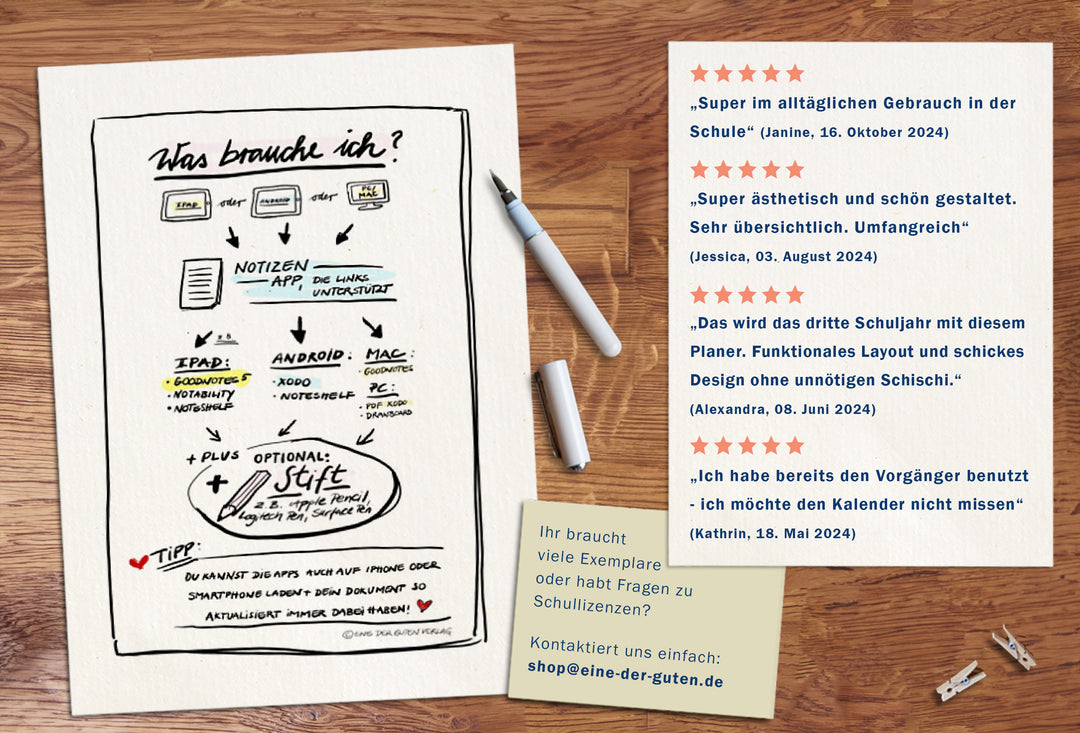 Was brauche ich?
IPAD oder ANDROID oder PC/ MAC
NOTIZEN
APP, DIE LINKS
UNTERSTÜTZT
z.B.
IPAD:
• GOODNOTES 5
• NOTABILITY
• NOTESHELF
ANDROID:
• XODO
• NOTESHELF
MAC:
• GOODNOTES
PC:
• PDF XODO
• DRAWBOARD
+ PLUS OPTIONAL:
+ Stift
z.B. Apple Pencil,
Logitech Pen, Surface Pen
TIPP:
DU KANNST DIE APPS AUCH AUF IPHONE ODER
SMARTPHONE LADEN + DEIN DOKUMENT SO
AKTUALISIERT IMMER DABEI HABEN!
© EINE DER GUTEN VERLAG
„Super im alltäglichen Gebrauch in der
Schule“ (Janine, 16. Oktober 2024)
„Super ästhetisch und schön gestaltet.
Sehr übersichtlich. Umfangreich“
(Jessica, 03. August 2024)
„Das wird das dritte Schuljahr mit diesem
Planer. Funktionales Layout und schickes
Design ohne unnötigen Schischi.“
(Alexandra, 08. Juni 2024)
„Ich habe bereits den Vorgänger benutzt
- ich möchte den Kalender nicht missen“
(Kathrin, 18. Mai 2024)
Ihr braucht
viele Exemplare
oder habt Fragen zu
Schullizenzen?
Kontaktiert uns einfach:
shop@eine-der-guten.de